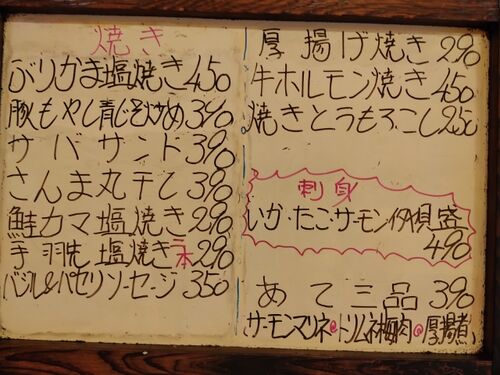 焼き
ぶりかま塩焼き 450
豚もやし青じそ炒め 390
サバサンド 390
さんま丸干し 390
鮭カマ塩焼き 290
手羽先塩焼き 二本 290
バジル&パセリソーセージ 350
厚揚げ焼き 290
牛ホルモン焼き 450
焼きとうもろこし 250
刺身
いか・たこ・サーモン
490
あて三品 390
サーモンマリネ トリムネ梅肉 厚揚煮